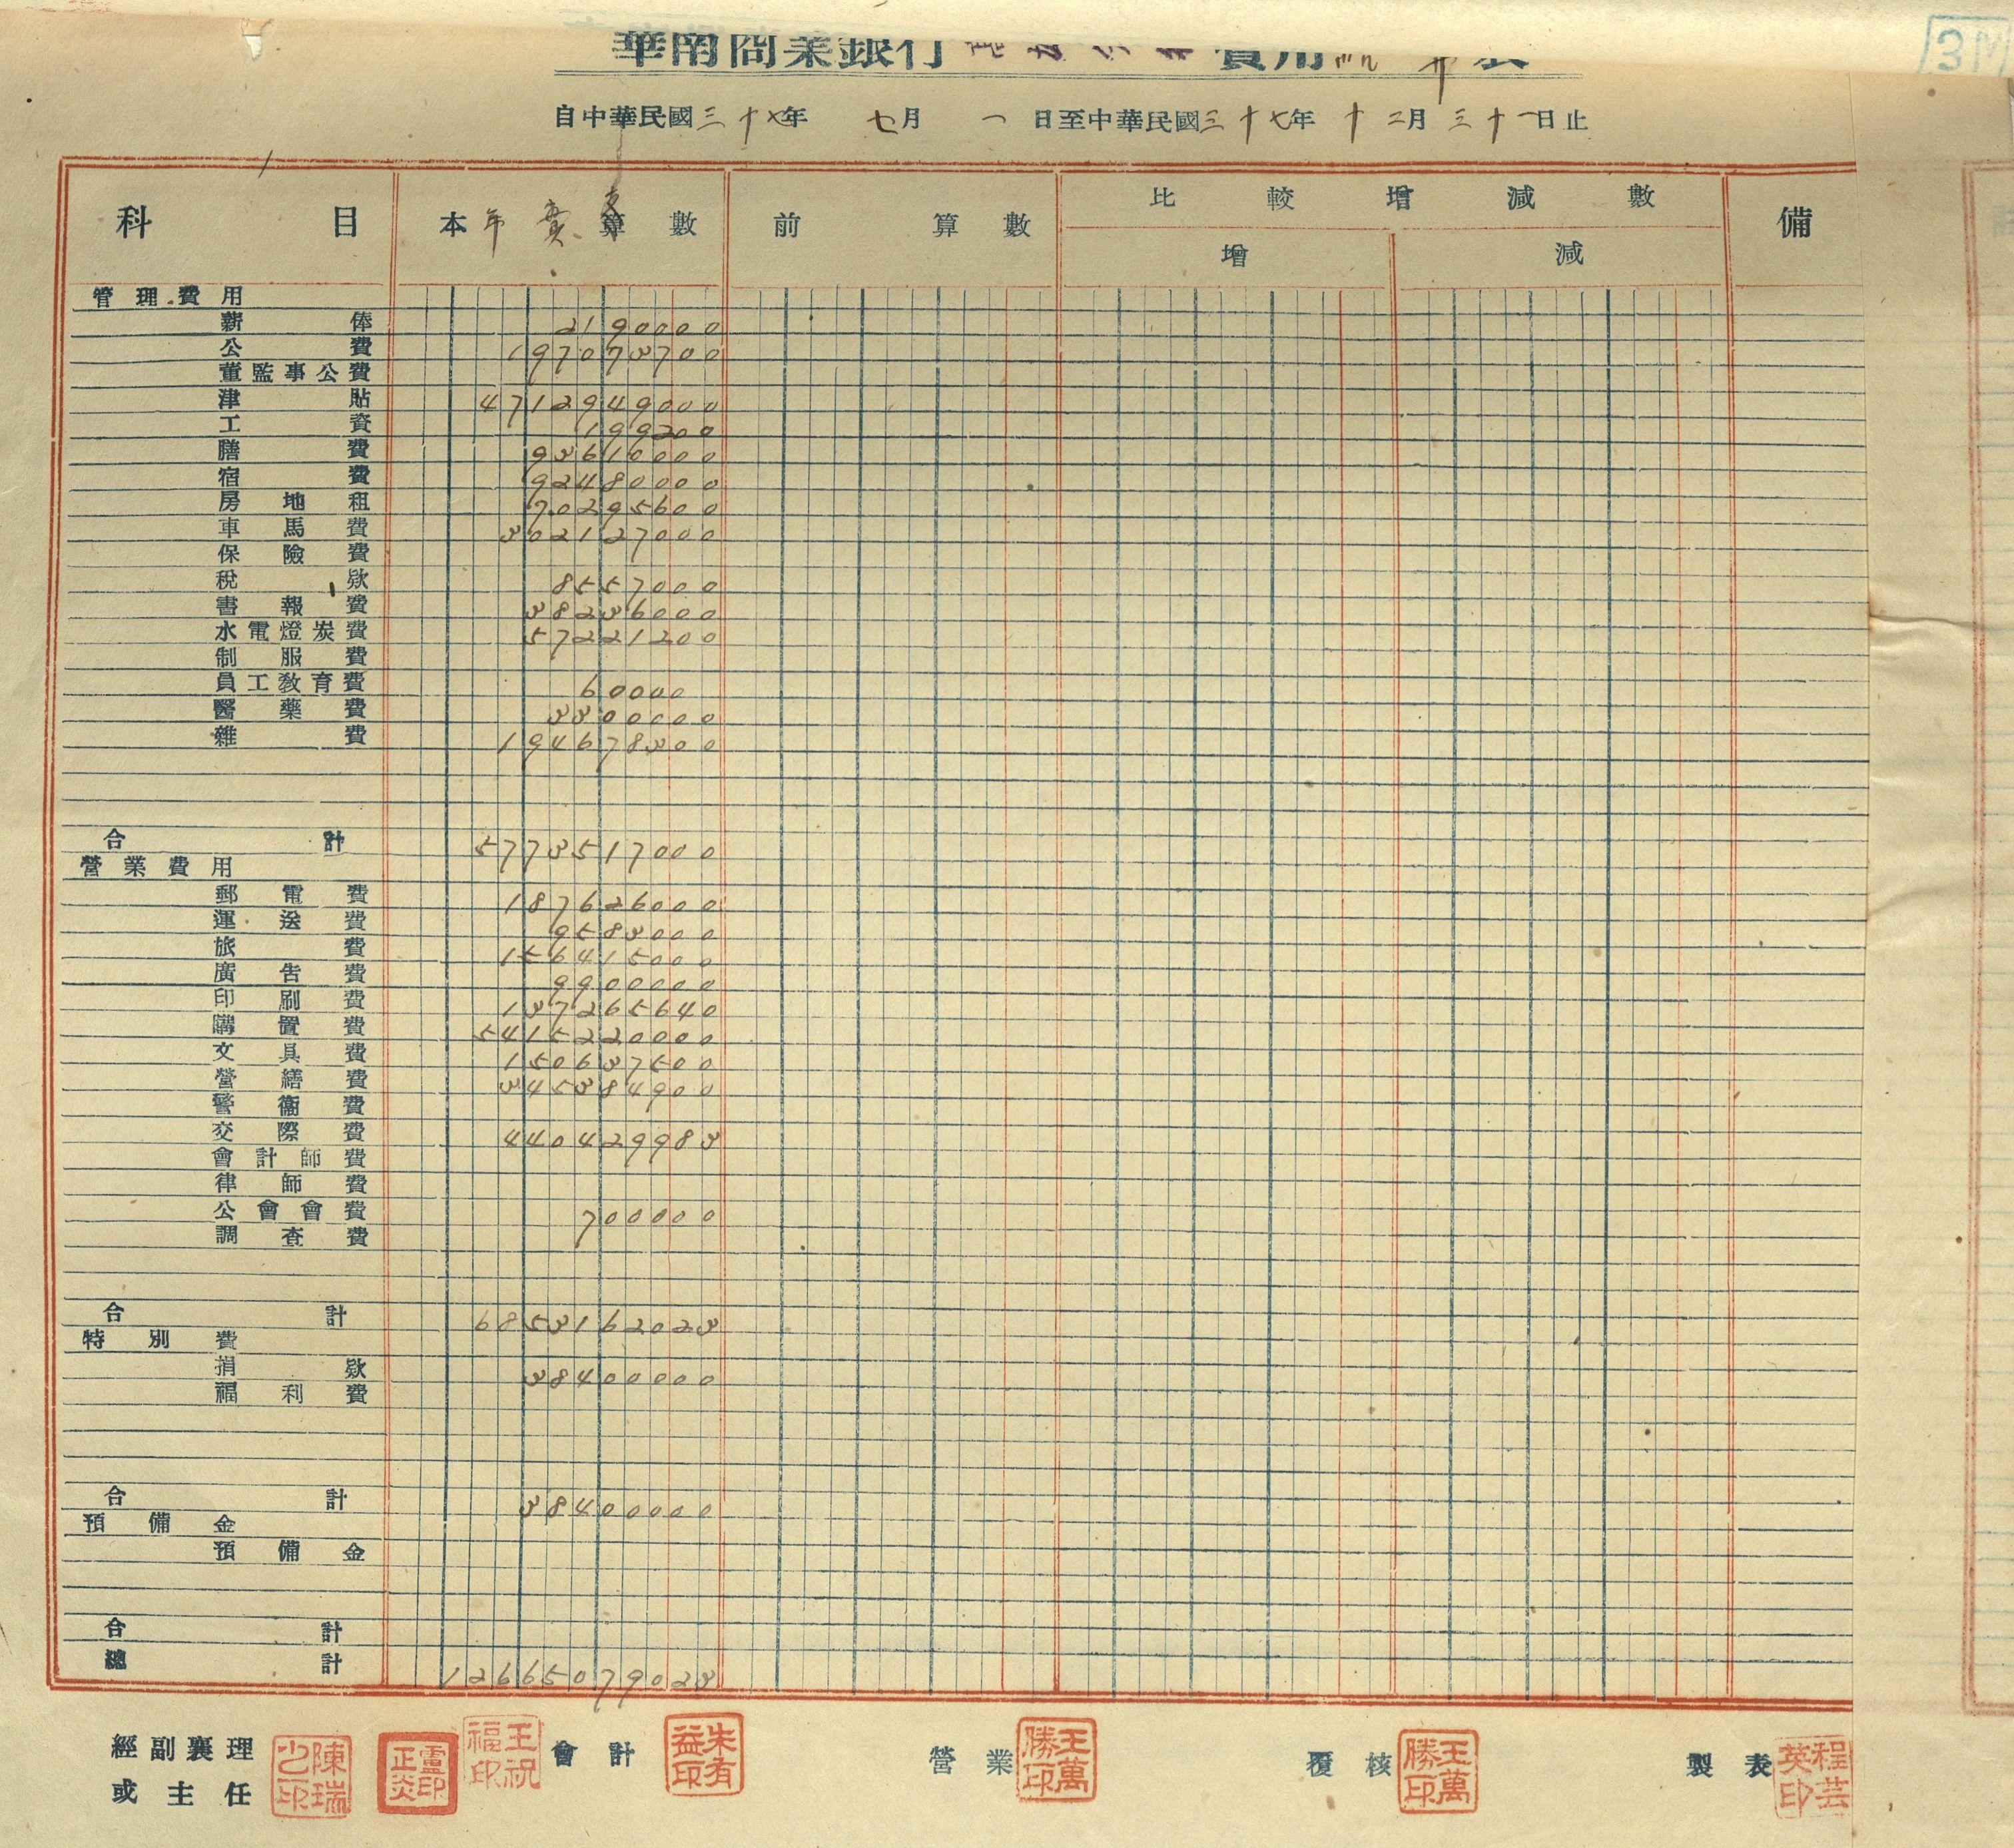 華南商業銀行 費用
自中華民國三十七年 七月 一日至中華民國三十七年 十二月三十一日止
科目 本年實支算數 前 算數 比較增減數 備
增 減
管理費用
薪俸 2190000
公費 197073700
董監事公費
津貼 4712949000
工資 199200
膳費 93610000
宿費 92480000
房地租 70295600
車馬費 302127000
保險費
稅欵 8557000
書報費 38236000
水電燈炭費 57221200
制服費
員工教育費 60000
醫藥費 3300000
雜費 194678300
合計 5773517000
營業費用
郵電費 187626000
運送費 9583000
旅費 156415000
廣告費 9900000
印刷費 137265640
購置費 5415220000
文具費 150637500
營繕費 345384900
警衞費
交際費 440429983
會計師費
律師費
公會會費 700000
調查費
合計 6853162023
特別費
捐欵 38400000
福利費
合計 38400000
預備金
預備金
合計
總計 12665079023
經副襄理 會計 營業 覆核 製表
或主任
陳瑞 盧印正炎 王祝福印 朱有益印 王萬勝印 王萬勝印 程芸英印